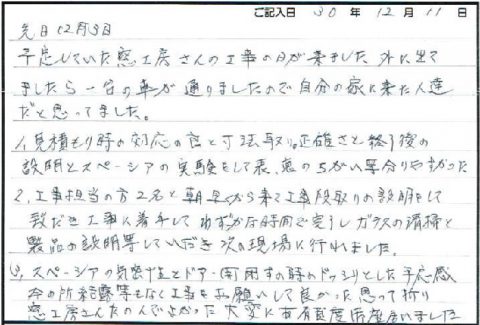 ご記入日 30年12月11日
先日12月3日
予定していた窓工房さんの工事の日が来ました 外に出て
ましたら一台の車が通りましたので自分の家に来た人達
だと思ってました。
1,見積もり時の対応の良と寸法取り正確さと終了後の
説明とスペーシアの実験をして表、裏のちがい等分りやすかった
2,工事担当の方2名と朝早から来て工事段取りの説明をして
頂だき工事に着手して わずかな時間で完了しガラスの清掃と
製品の説明等していただき次の現場に行れました。
3,スペーシアの気密性とドアー(開)閉するの時のドッシリとした手応感
今の所結露等もなく工事をお願いして良かった思って折り
窓工房さんたのんでよかった 大変に有有難度御座居いました